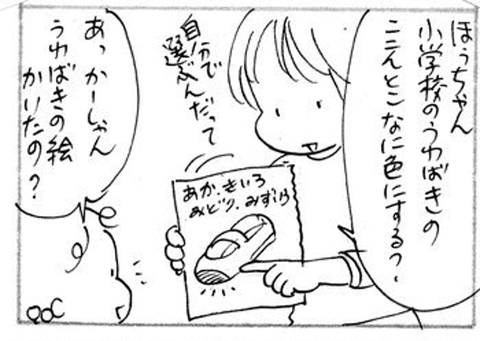 ほぅちゃん
小学校のうわばきの
ここんとこなに色にする?
自分で
選ぶんだって
あか、きいろ
みどり、みずいろ
あっ かーしゃん
うわばきの絵
かいたの?